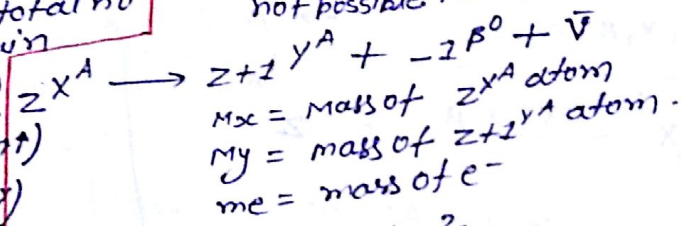 total no
not possible
zXᴬ ⟶ z+1Yᴬ + -1β⁰ + ν̄
Mx = Mass of zXᴬ atom
My = mass of z+1Yᴬ atom.
me = mass of e⁻